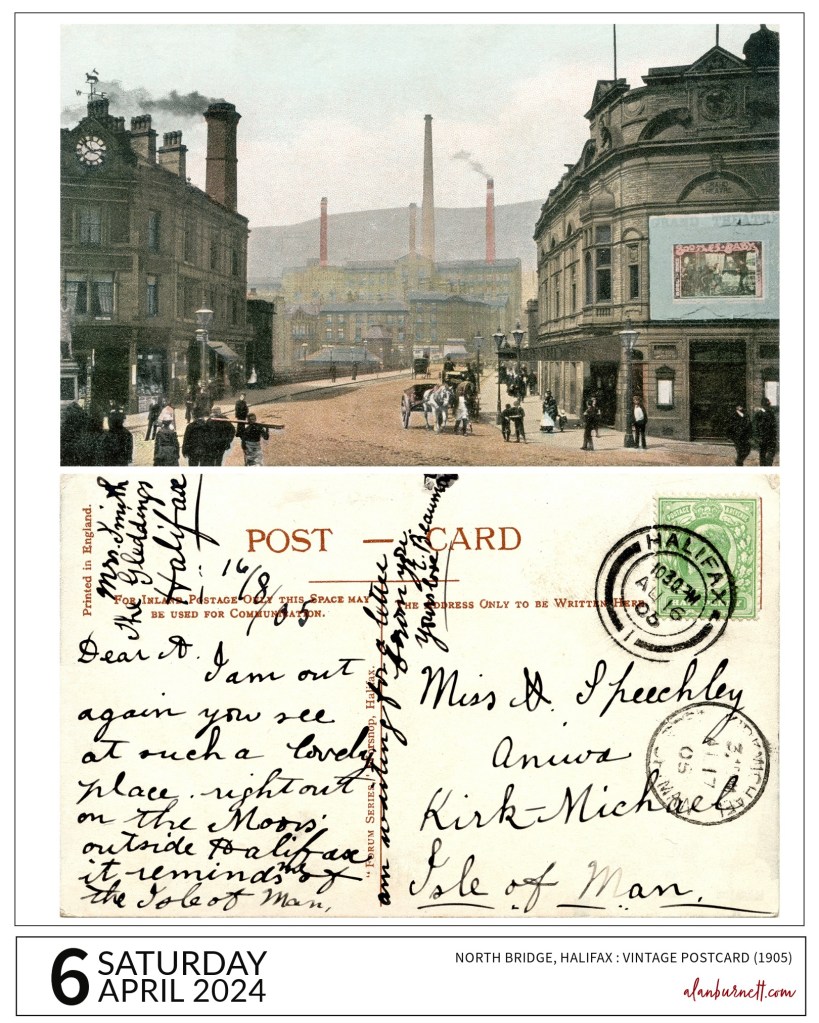 BOOTLES BABY
Mrs. Smith
The Gleddings
Halifax
16/8/05
Printed in England.
POST — CARD
FOR INLAND POSTAGE ONLY THIS SPACE MAY
BE USED FOR COMMUNICATION.
THE ADDRESS ONLY TO BE WRITTEN HERE
Dear A.
I am out
again you see
at such a lovely
place. right out
on the Moors
outside Halifax
it reminds me of
the Isle of Man,
am waiting for a letter
from you.
Yours love Beaumont
"FORUM SERIES," Halifax.
POSTAGE
HALIFAX
10 30 AM
AU 16
05
1
Miss A. Speechley
Kirk-Michael
Isle of Man.
KIRK MICHAEL
AU 17
05
6 SATURDAY
APRIL 2024
NORTH BRIDGE, HALIFAX : VINTAGE POSTCARD (1905)
alanburnett.com